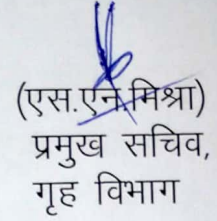 (एस.एन.मिश्रा)
प्रमुख सचिव,
गृह विभाग